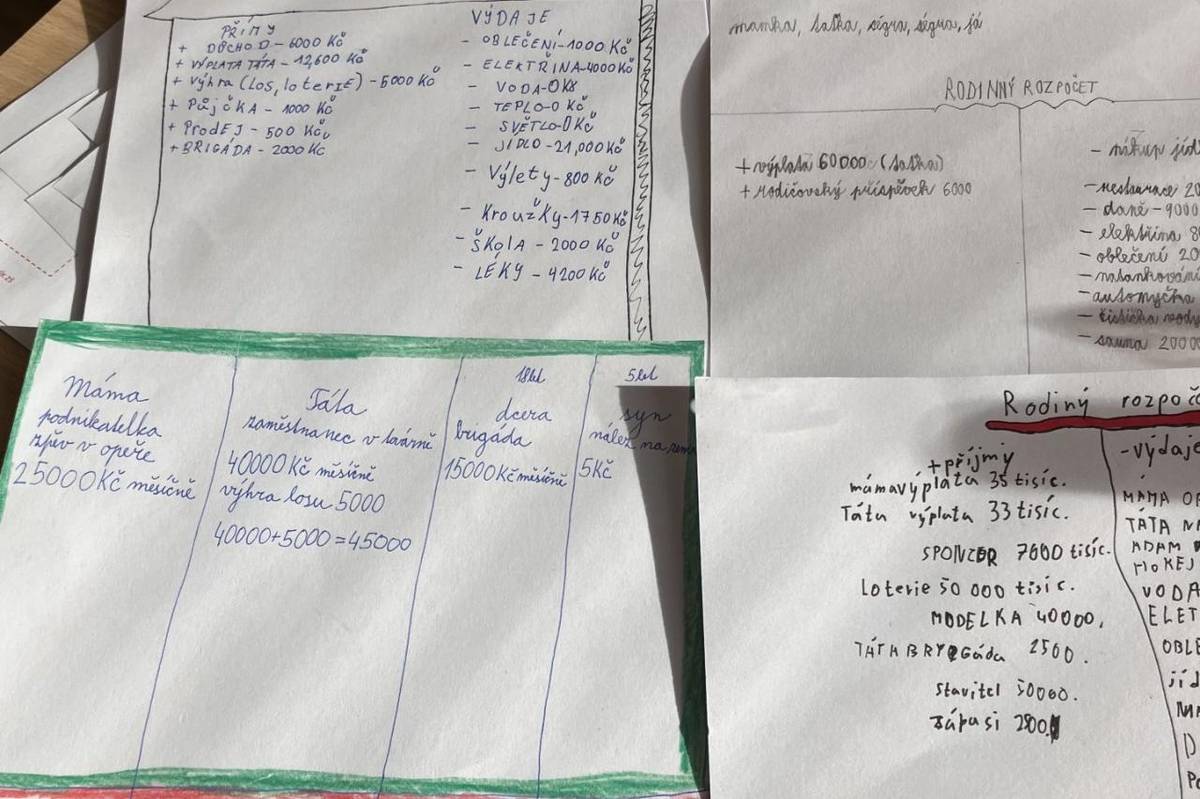 PŘÍMY
+ OBCHOD - 6000 Kč
+ VÝPLATA TÁTA - 12,600 Kč
+ Výhra (los, loterie) - 5000 Kč
+ Půjčka - 1000 Kč
+ ProdEJ - 500 Kč
+ BRIGÁDA - 2000 Kč
VÝDAJE
- OBLEČENÍ - 1000 Kč
- ELEKTŘINA - 4000 Kč
- VODA - 0 Kč
- TEPLO - 0 Kč
- SVĚTLO - 0 Kč
- JÍDLO - 21,000 Kč
- Výlety - 800 Kč
- Kroužky - 1750 Kč
- ŠKOLA - 2000 Kč
- LÉKY - 4200 Kč
mamka, taťka, ségra, ségra, já
RODINNÝ ROZPOČET
+ výplata 60000 (taťka)
+ rodičovský příspěvek 6000
- nákup jíd
- restaurace 20
- daně - 9000
- elektřina 8
- oblečení 20
- natankování
- automyčka
- čistička vody
- sauna 2000
Máma
podnikatelka
zpěv v opeře
25000 Kč měsíčně
Táta
zaměstnanec v továrně
40000 Kč měsíčně
výhra losu 5000
40000+5000=45000
18 let
dcera
brigáda
15000 Kč měsíčně
5 let
syn
nález na zemi
5 Kč
Rodiný rozpoč
+ příjmy
máma výplata 35 tisíc.
Táta výplata 33 tisíc.
SPONZOR 7000 tisíc.
Loterie 50 000 tisíc.
MODELKA 40000,
TÁTA
2500.
Stavitel 50000.
- výdaje
MÁMA
TÁTA
ADAM
HOKEJ
VODA
ELET
OBLE
jíd